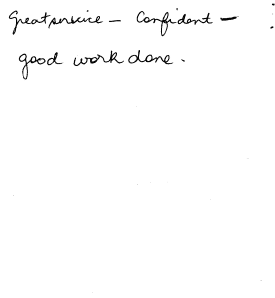 Great service – Confident –
good work done.